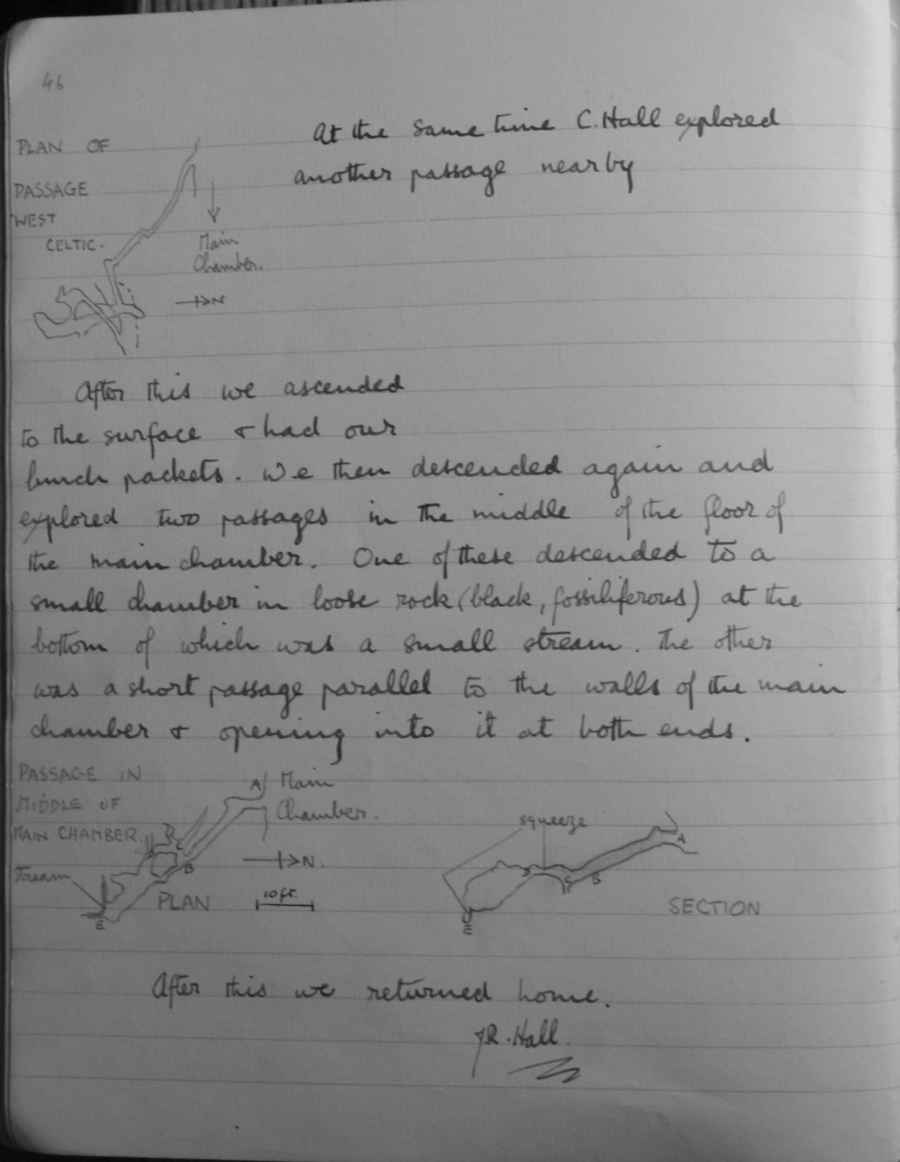 46
At the same time C. Hall explored
another passage nearby
PLAN OF
PASSAGE
WEST
CELTIC.
Main
Chamber.
N
After this we ascended
to the surface & had our
lunch packets. We then descended again and
explored two passages in the middle of the floor of
the main chamber. One of these descended to a
small chamber in loose rock (black, fossiliferous) at the
bottom of which was a small stream. The other
was a short passage parallel to the walls of the main
chamber & opening into it at both ends.
PASSAGE IN
MIDDLE OF
MAIN CHAMBER
A Main
Chamber.
D
C
B
N.
Stream
E
PLAN
10 ft.
squeeze
A
B
C
D
E
SECTION
After this we returned home.
J.R. Hall.